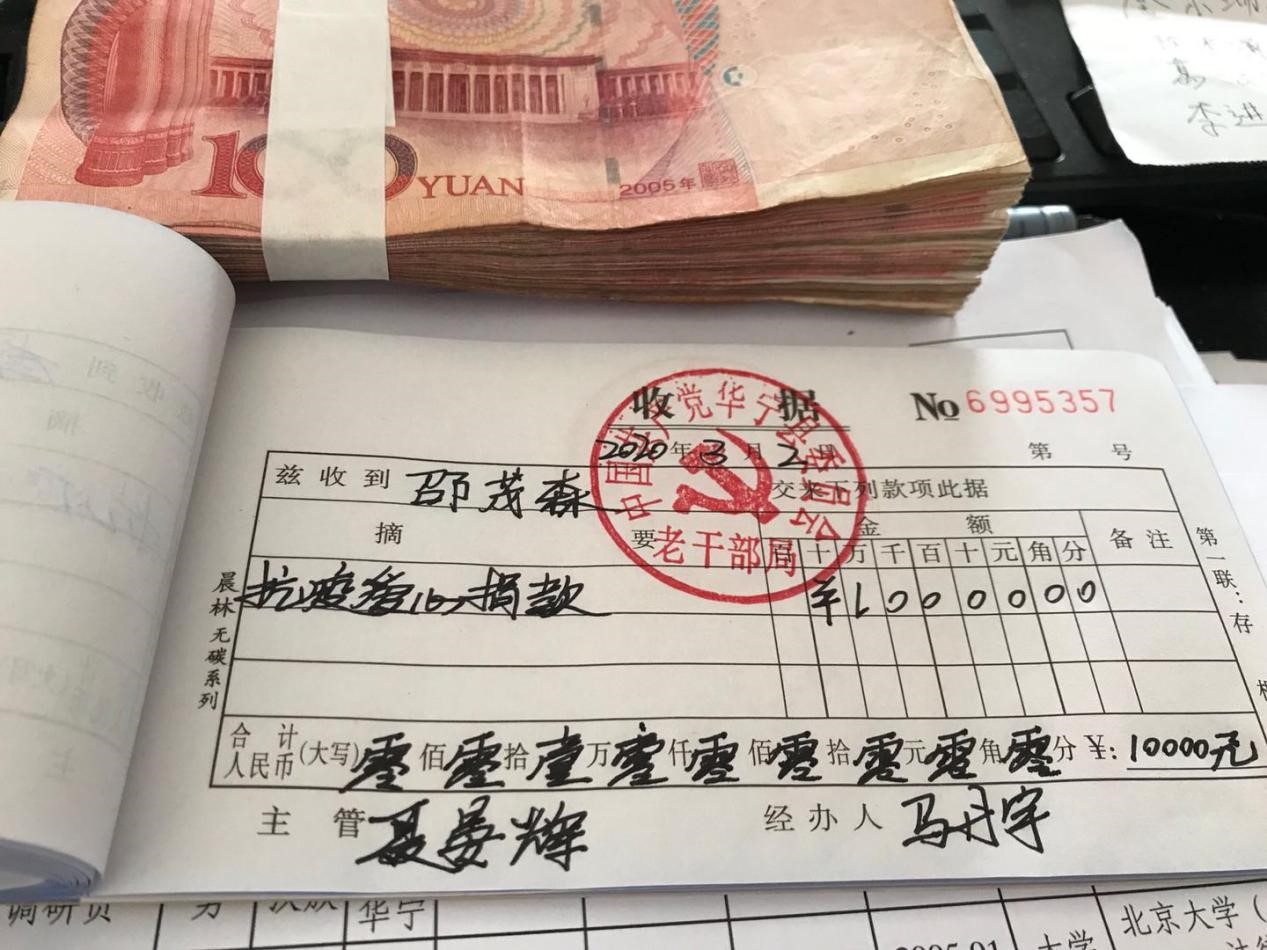 100 YUAN
2005年
李进
收据
No 6995357
2020年3月2日
第 号
兹收到 邵茂森 交来下列款项此据
摘要 金额 备注
百十万千百十元角分
抗疫爱心捐款 ¥1000000
合计人民币(大写)零佰零拾壹万零仟零佰零拾零元零角零分 ¥:10000元
主管 聂晏辉 经办人 马丹宇
晨林无碳系列
第一联:存根
中国共产党华宁县委员会
老干部局
调研员 男 汉族 华宁
2005.01
大学
北京大学(